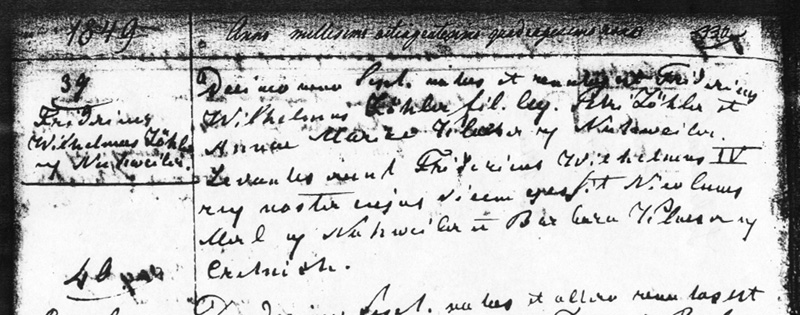 1849 Anno millesimo octingentesimo quadragesimo nono
39
Fridericus
Wilhelmus Zöhler
ex Nuhweiler.
Decimo nono Sept. natus et renatus est Fridericus
Wilhelmus Zöhler fil. leg. Petri Zöhler et
Annae Mariae ex Nuhweiler.
Levantes erunt Fridericus Wilhelmus IV
rex noster cujus vicem gessit Nicolaus
ex Nuhweiler et Barbara ex
40
Sept. natus et altero renatus est